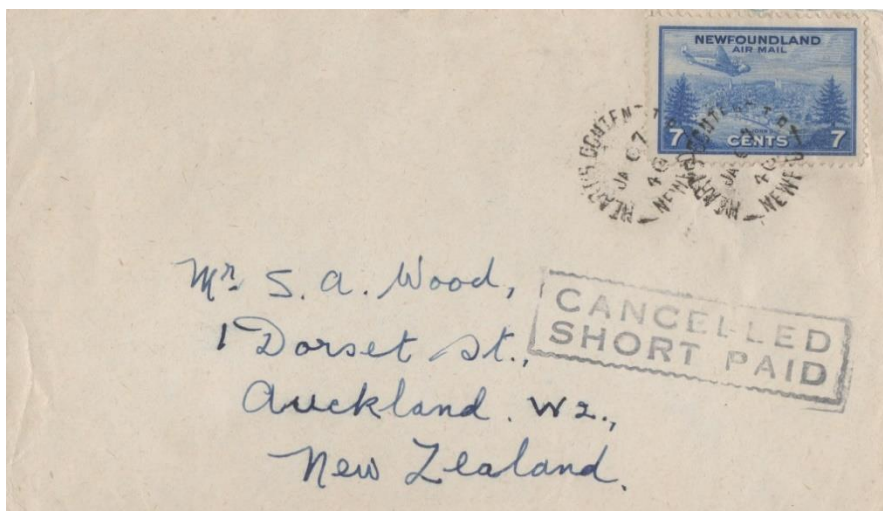 NEWFOUNDLAND
AIR MAIL
7 CENTS 7
HEART'S CONTENT
JA 7
46
NEWF
HEART'S CONTENT
JA 7
46
NEWF
Mr. S. A. Wood,
1 Dorset St.,
Auckland. W2.,
New Zealand.
CANCELLED
SHORT PAID